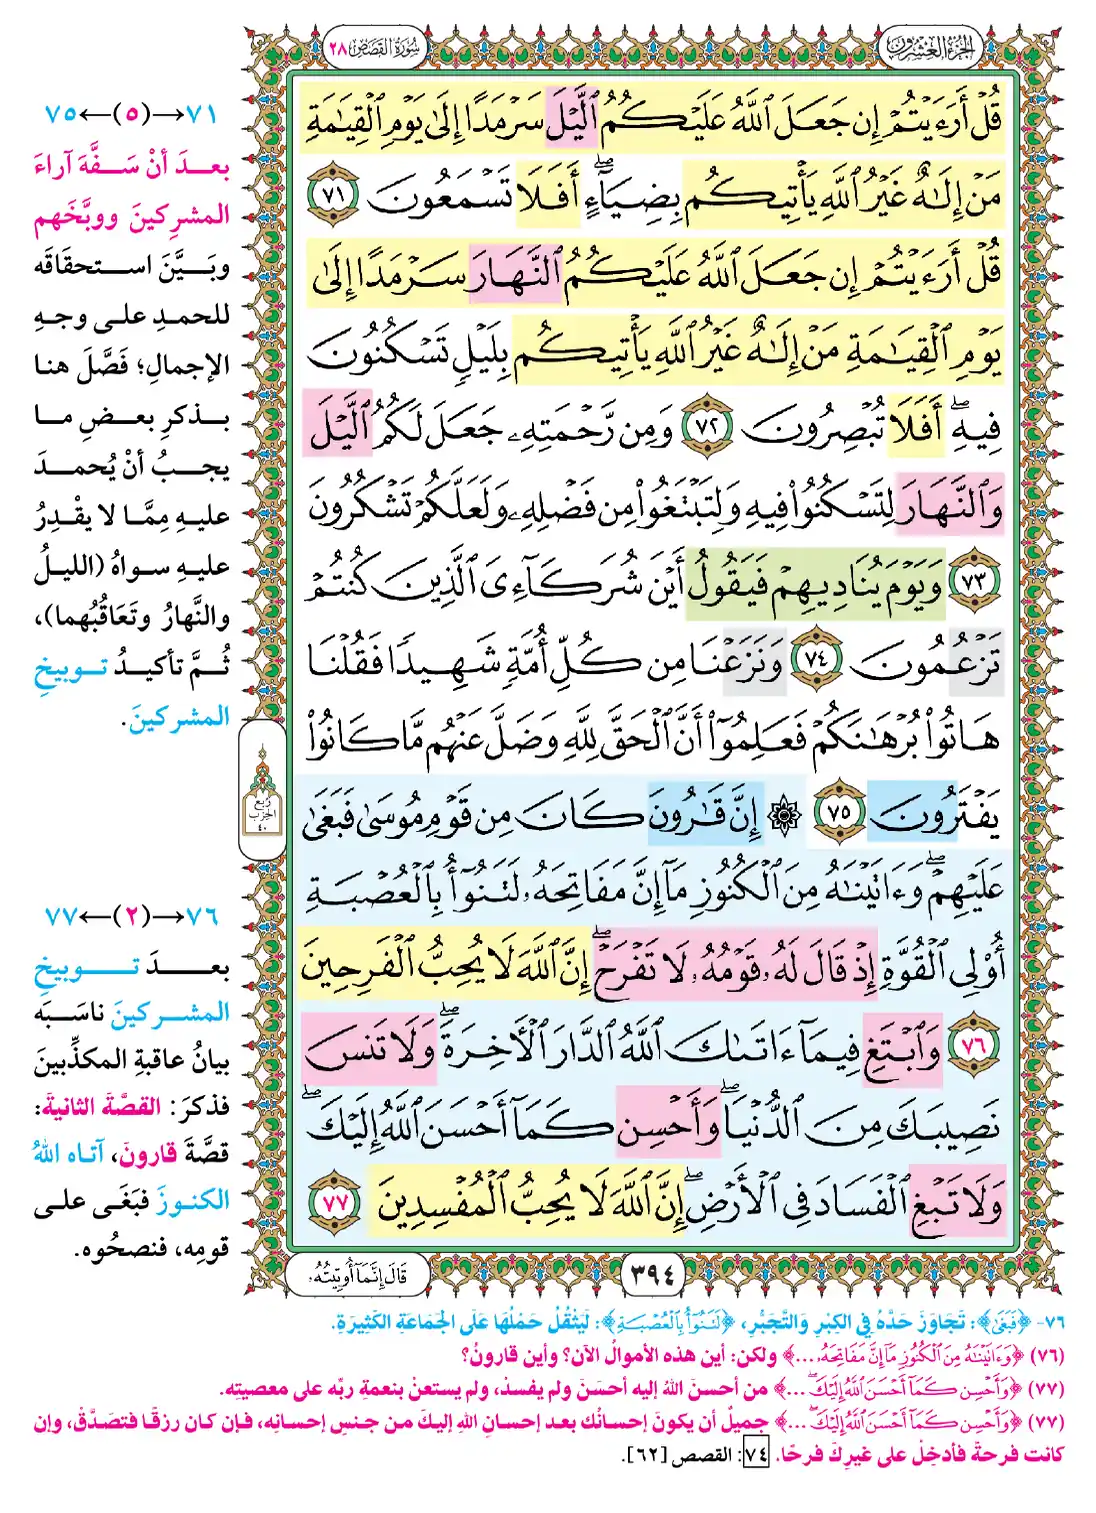 الجزء العشرون
سورة القصص ٢٨
قُلْ أَرَءَيْتُمْ إِن جَعَلَ ٱللَّهُ عَلَيْكُمُ ٱلَّيْلَ سَرْمَدًا إِلَىٰ يَوْمِ ٱلْقِيَٰمَةِ
مَنْ إِلَٰهٌ غَيْرُ ٱللَّهِ يَأْتِيكُم بِضِيَآءٍ ۖ أَفَلَا تَسْمَعُونَ ٧١
قُلْ أَرَءَيْتُمْ إِن جَعَلَ ٱللَّهُ عَلَيْكُمُ ٱلنَّهَارَ سَرْمَدًا إِلَىٰ
يَوْمِ ٱلْقِيَٰمَةِ مَنْ إِلَٰهٌ غَيْرُ ٱللَّهِ يَأْتِيكُم بِلَيْلٍ تَسْكُنُونَ
فِيهِ ۖ أَفَلَا تُبْصِرُونَ ٧٢ وَمِن رَّحْمَتِهِۦ جَعَلَ لَكُمُ ٱلَّيْلَ
وَٱلنَّهَارَ لِتَسْكُنُوا۟ فِيهِ وَلِتَبْتَغُوا۟ مِن فَضْلِهِۦ وَلَعَلَّكُمْ تَشْكُرُونَ
٧٣ وَيَوْمَ يُنَادِيهِمْ فَيَقُولُ أَيْنَ شُرَكَآءِىَ ٱلَّذِينَ كُنتُمْ
تَزْعُمُونَ ٧٤ وَنَزَعْنَا مِن كُلِّ أُمَّةٍ شَهِيدًا فَقُلْنَا
هَاتُوا۟ بُرْهَٰنَكُمْ فَعَلِمُوٓا۟ أَنَّ ٱلْحَقَّ لِلَّهِ وَضَلَّ عَنْهُم مَّا كَانُوا۟
يَفْتَرُونَ ٧٥ ۞ إِنَّ قَٰرُونَ كَانَ مِن قَوْمِ مُوسَىٰ فَبَغَىٰ
عَلَيْهِمْ ۖ وَءَاتَيْنَٰهُ مِنَ ٱلْكُنُوزِ مَآ إِنَّ مَفَاتِحَهُۥ لَتَنُوٓأُ بِٱلْعُصْبَةِ
أُو۟لِى ٱلْقُوَّةِ إِذْ قَالَ لَهُۥ قَوْمُهُۥ لَا تَفْرَحْ ۖ إِنَّ ٱللَّهَ لَا يُحِبُّ ٱلْفَرِحِينَ
٧٦ وَٱبْتَغِ فِيمَآ ءَاتَىٰكَ ٱللَّهُ ٱلدَّارَ ٱلْءَاخِرَةَ ۖ وَلَا تَنسَ
نَصِيبَكَ مِنَ ٱلدُّنْيَا ۖ وَأَحْسِن كَمَآ أَحْسَنَ ٱللَّهُ إِلَيْكَ ۖ
وَلَا تَبْغِ ٱلْفَسَادَ فِى ٱلْأَرْضِ ۖ إِنَّ ٱللَّهَ لَا يُحِبُّ ٱلْمُفْسِدِينَ ٧٧
٧١→(٥)←٧٥
بعدَ أنْ سَفَّهَ آراءَ
المشرِكينَ ووبَّخَهم
وبَيَّنَ استحقَاقَه
للحمدِ على وجهِ
الإجمالِ؛ فَصَّلَ هنا
بذكرِ بعضِ ما
يجبُ أنْ يُحمدَ
عليهِ مِمَّا لا يقْدِرُ
عليهِ سواهُ (الليلُ
والنَّهارُ وتَعَاقُبُهما)،
ثُمَّ تأكيدُ توبيخِ
المشركينَ.
ربع
الحزب
٤٠
٧٦→(٢)←٧٧
بعدَ توبيخِ
المشركينَ ناسَبَه
بيانُ عاقبةِ المكذِّبينَ
فذكرَ: القصَّةَ الثانيةَ:
قصَّةَ قارونَ، آتاه اللهُ
الكنوزَ فبَغَى على
قومِه، فنصحُوه.
٣٩٤
قَالَ إِنَّمَآ أُوتِيتُهُۥ
٧٦- ﴿فَبَغَىٰ﴾: تَجَاوَزَ حَدَّهُ فِي الكِبْرِ وَالتَّجَبُّرِ، ﴿لَتَنُوٓأُ بِٱلْعُصْبَةِ﴾: لَيَثْقُلُ حَمْلُهَا عَلَى الجَمَاعَةِ الكَثِيرَةِ.
(٧٦) ﴿وَءَاتَيْنَٰهُ مِنَ ٱلْكُنُوزِ مَآ إِنَّ مَفَاتِحَهُۥ ...﴾ ولكن: أين هذه الأموالُ الآن؟ وأين قارونُ؟
(٧٧) ﴿وَأَحْسِن كَمَآ أَحْسَنَ ٱللَّهُ إِلَيْكَ ۖ ...﴾ من أحسنَ اللهُ إليه أحسَنَ ولم يفسدْ، ولم يستعنْ بنعمةِ ربِّه على معصيتِه.
(٧٧) ﴿وَأَحْسِن كَمَآ أَحْسَنَ ٱللَّهُ إِلَيْكَ ۖ ...﴾ جميلٌ أن يكونَ إحسانُك بعد إحسانِ اللهِ إليكَ من جنسِ إحسانِه، فإن كان رزقًا فتصَدَّقْ، وإن
كانت فرحةً فأدخِلْ على غيرِكَ فرحًا. ٧٤: القصص [٦٢].